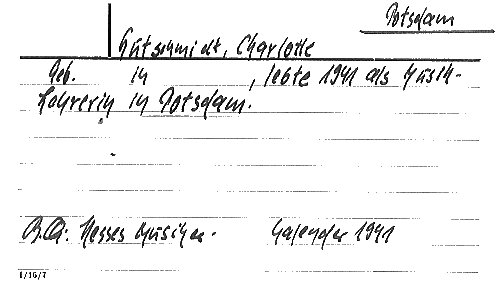 Potsdam
Gutschmidt, Charlotte
Geb. in , lebte 1941 als Musik-
Lehrerin in Potsdam.
B.Qu: Hesses Musiker- Kalender 1941
1/16/7